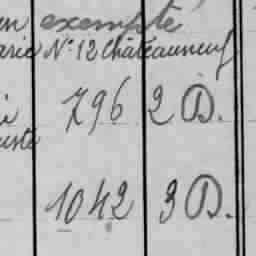 en exempté
arie N° 12 Châteauneuf
i 796 2 D.
uste
1042 3 D.